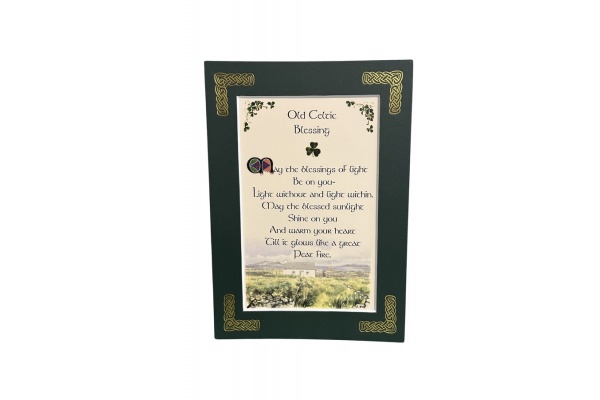 Old Celtic
Blessing
May the blessings of light
Be on you-
Light without and light within.
May the blessed sunlight
Shine on you
And warm your heart
'Till it glows like a great
Peat fire.